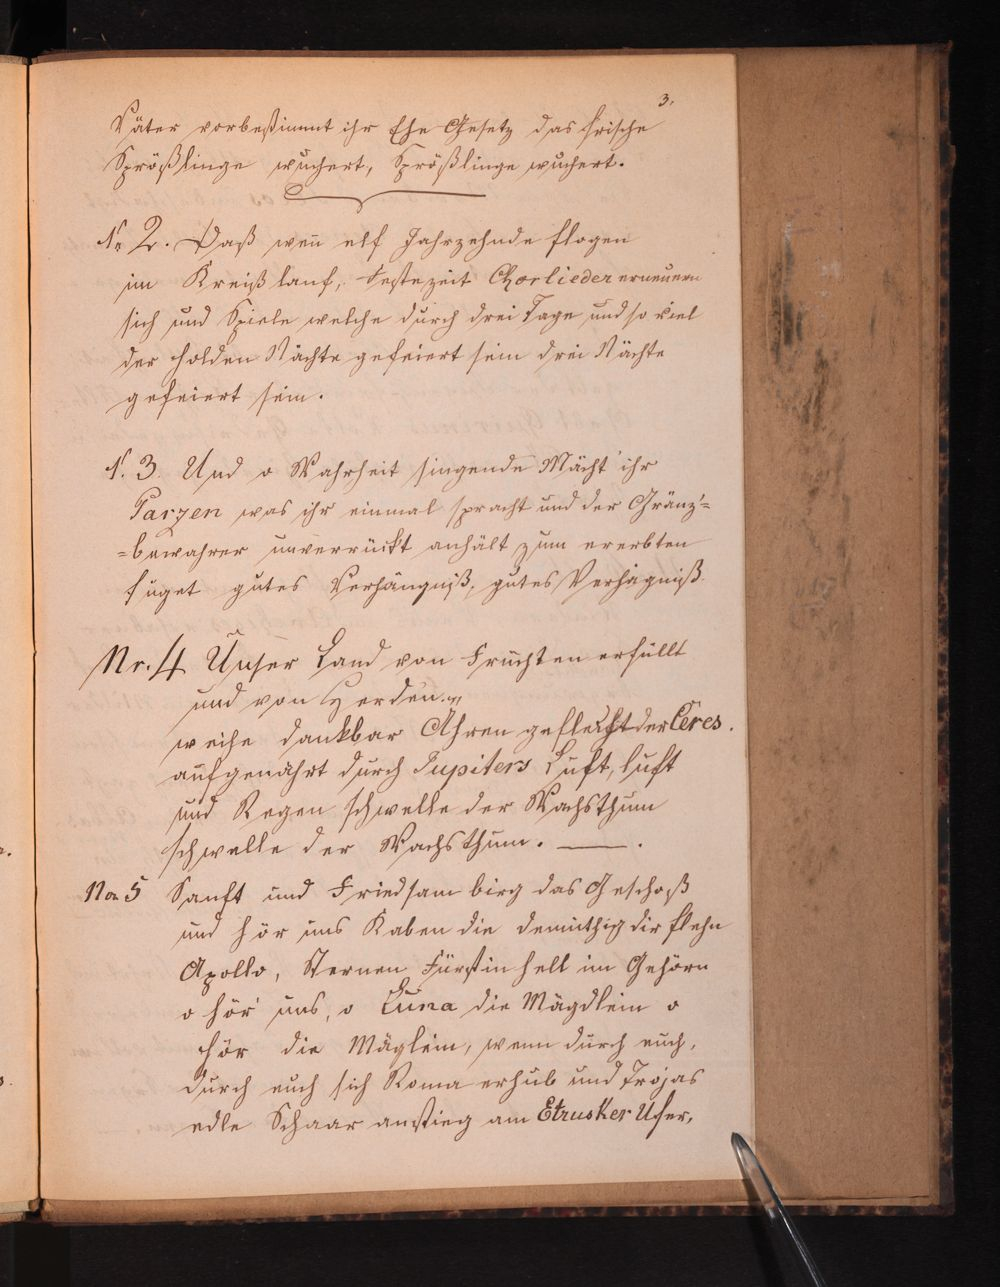 3.
Väter vorbestimmt ihr Ehe Gesetz das frische
Sprößlinge wuchert, Sprößlinge wuchert.
Nr 2. Daß weñ elf Jahrzehnde flogen
im Kreißlauf, Festezeit Chorlieder erneuern
sich und Spiele welche durch drei Tage und so viel
der holden Nächte gefeiert sein drei Nächte
gefeiert sein.
N. 3. Und o Wahrheit singende Mächt' ihr
Parzen was ihr einmal spracht und der Gränz'=
=bewahrer unverrückt anhält zum ererbten
füget gutes Verhängniß, gutes Verhägniß.
Nr. 4 Unser Land von Früchten erfüllt
und von Herden.
weihe dankbar Ähren geflecht der Ceres.
aufgenährt durch Jupiters Luft, luft
und Regen schwelle der Wachsthum
schwelle der Wachsthum. — .
No 5 Sanft und Friedsam birg das Geschoß
und hör uns Knaben die demüthig dir flehn
Apollo, Sternen Fürstin hell im Gehörn
o hör' uns, o Luna die Mägdlein o
hör die Mäglein, wenn durch euch,
durch euch sich Roma erhub und Trojas
edle Schaar anstieg am Etrusker Ufer,